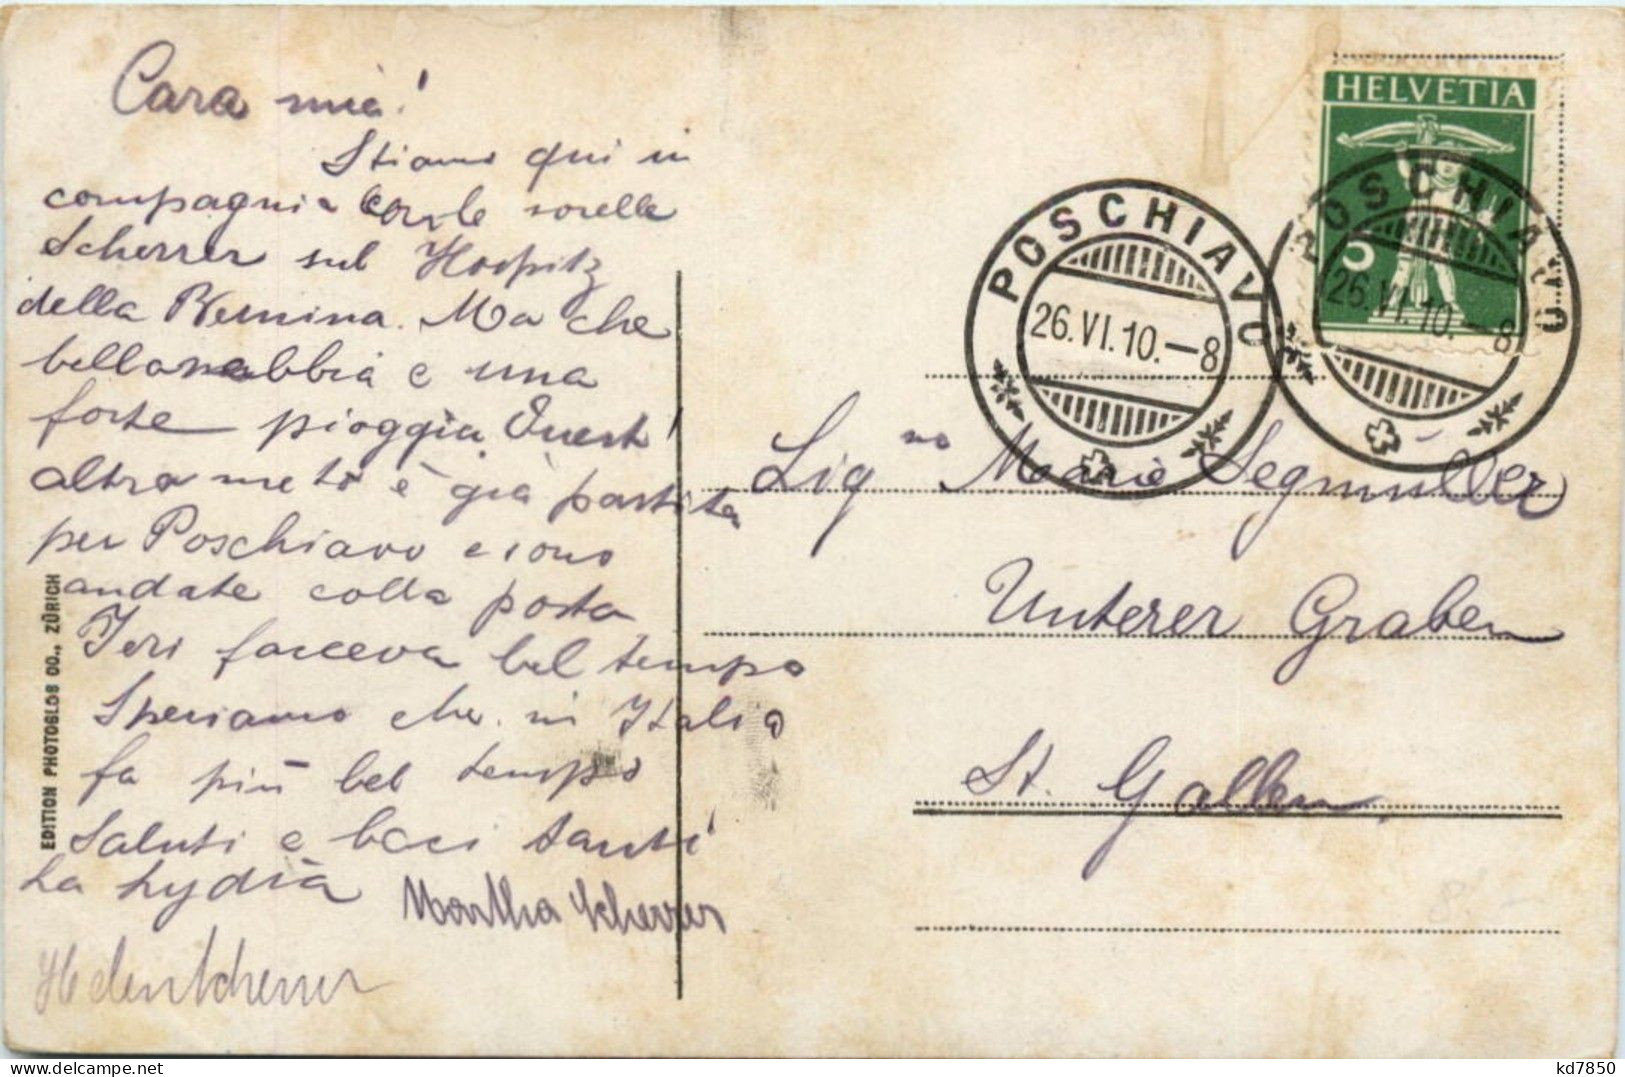 Cara mia!
Stiamo qui in
compagnia colle sorelle
Scherrer sul Hospitz
della Bernina. Ma che
bella nabbia e una
forte pioggia. Quest'
altra metà è già partita
per Poschiavo e sono
andate colla posta
Ieri faceva bel tempo
Speriamo che in Italia
fa più bel tempo
Saluti e baci tanti
La Lydia
Martha Scherrer
Helen Scherrer
EDITION PHOTOGLOB CO., ZÜRICH
HELVETIA
5
POSCHIAVO
26.VI.10.-8
POSCHIAVO
26.VI.10.-8
Sig na Marie Segmüller
Unterer Graben
St. Gallen.
8.-
kd7850